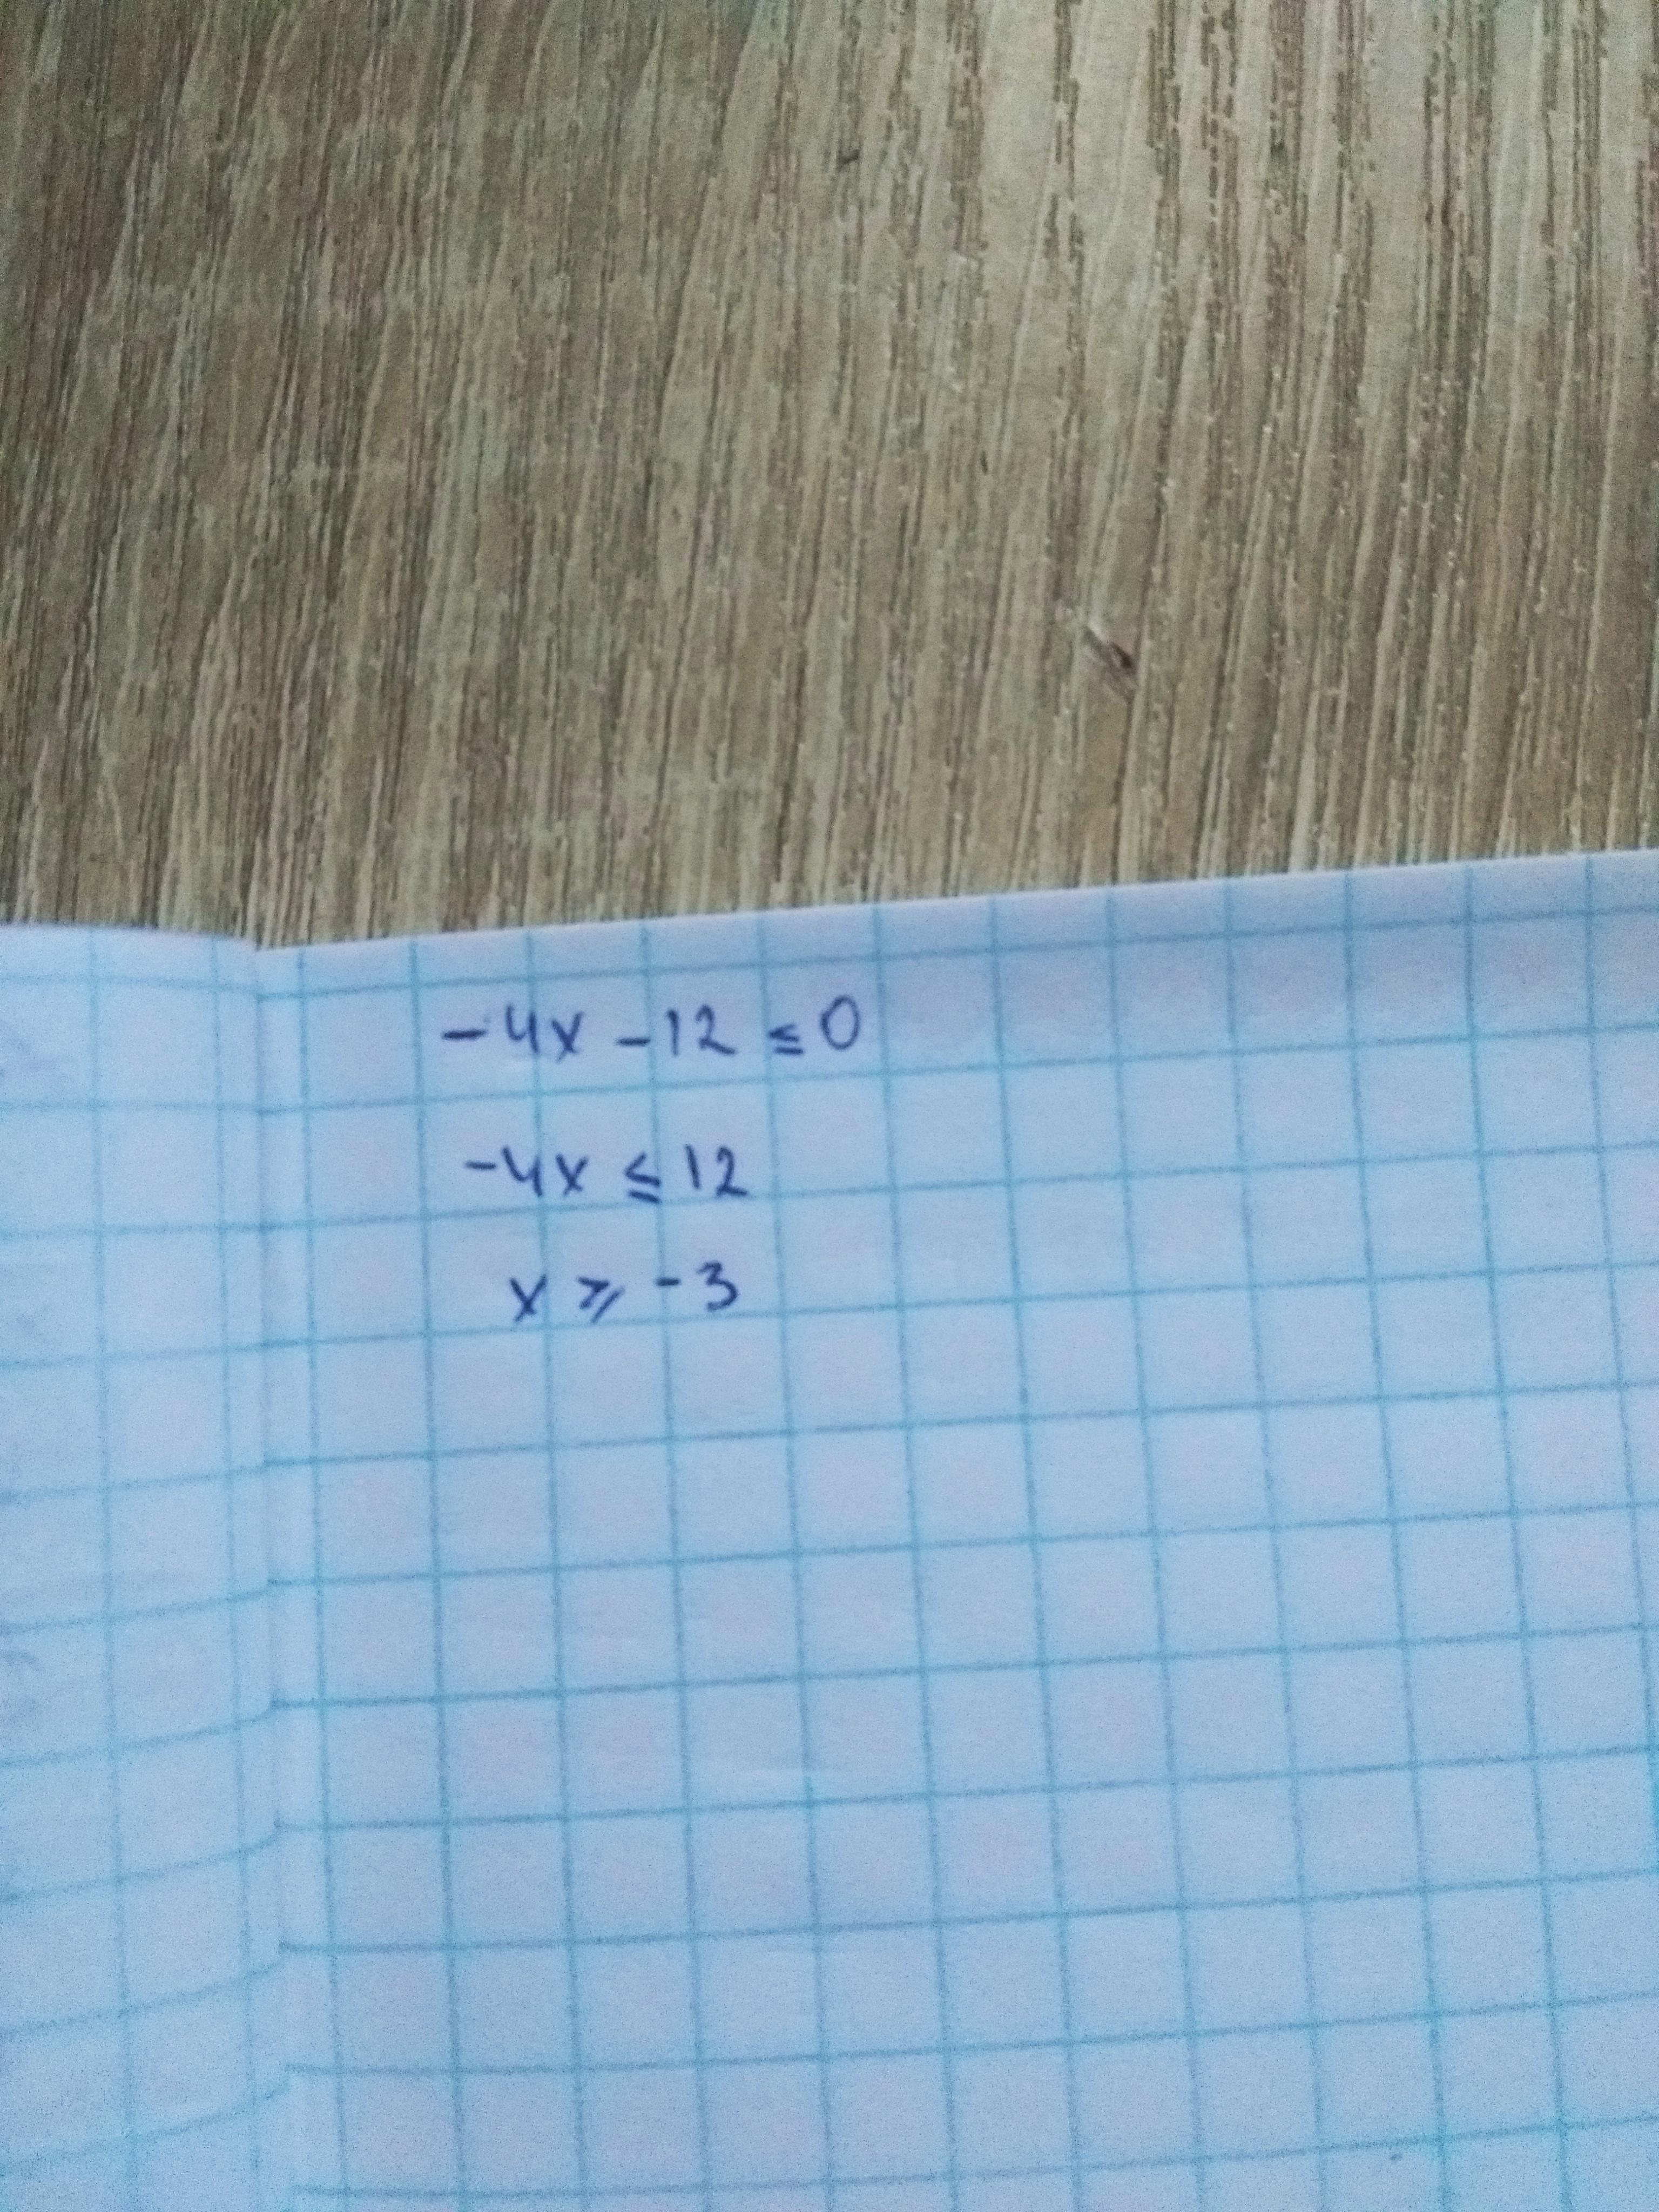 -4x - 12 ≤ 0
-4x ≤ 12
x ⩾ -3